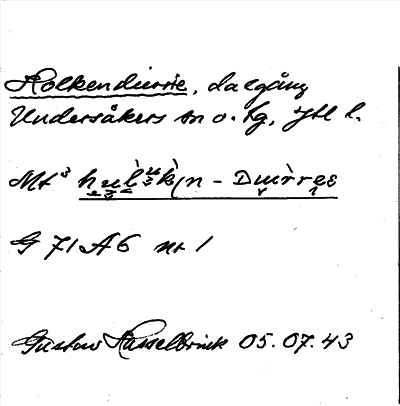 Holkendurrie, dalgång
Undersåkers sn o. tg, Jtl l.
Mt³
G 71 A6 nr 1
Gustav Hasselbrink 05.07.43